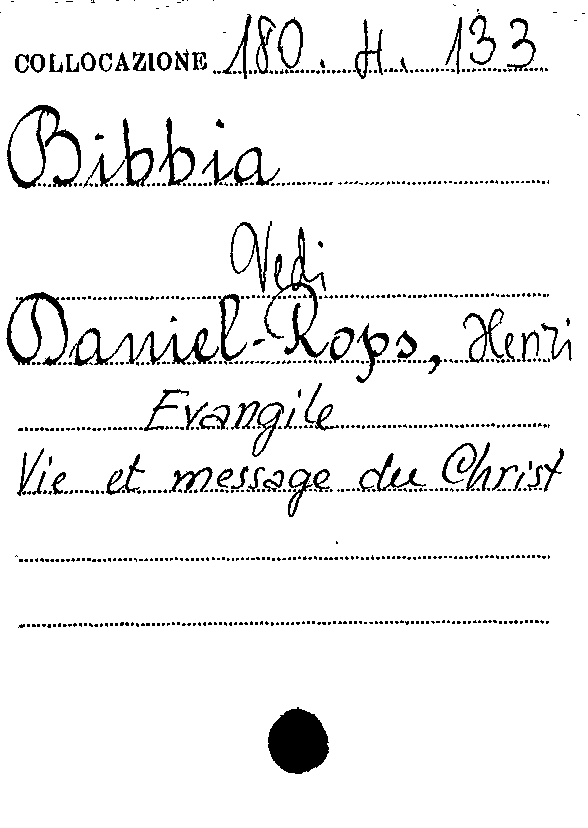 COLLOCAZIONE 180. H. 133
Bibbia
Vedi
Daniel-Rops, Henri
Evangile
Vie et message du Christ